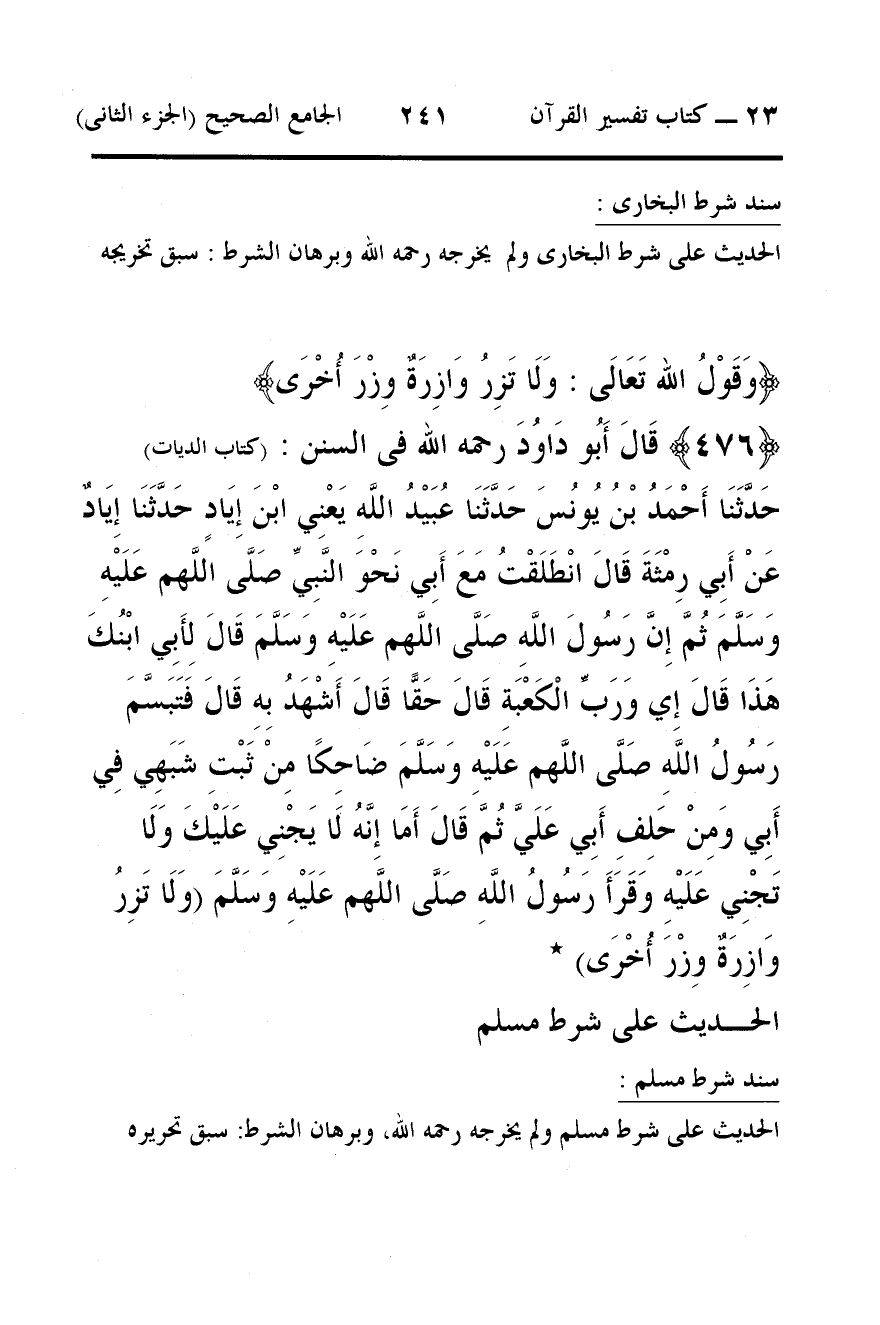 ٢٣ ــ كتاب تفسير القرآن ٢٤١ الجامع الصحيح (الجزء الثانى)
سند شرط البخارى :
الحديث على شرط البخارى ولم يخرجه رحمه الله وبرهان الشرط : سبق تخريجه
﴿وَقَوْلُ الله تَعَالَى : وَلَا تَزِرُ وَازِرَةٌ وِزْرَ أُخْرَى﴾
﴿٤٧٦﴾ قَالَ أَبُو دَاوُدَ رحمه الله فى السنن : (كتاب الديات)
حَدَّثَنَا أَحْمَدُ بْنُ يُونُسَ حَدَّثَنَا عُبَيْدُ اللَّهِ يَعْنِي ابْنَ إِيَادٍ حَدَّثَنَا إِيَادٌ
عَنْ أَبِي رِمْثَةَ قَالَ انْطَلَقْتُ مَعَ أَبِي نَحْوَ النَّبِيِّ صَلَّى اللَّهم عَلَيْهِ
وَسَلَّمَ ثُمَّ إِنَّ رَسُولَ اللَّهِ صَلَّى اللَّهم عَلَيْهِ وَسَلَّمَ قَالَ لِأَبِي ابْنُكَ
هَذَا قَالَ إِي وَرَبِّ الْكَعْبَةِ قَالَ حَقًّا قَالَ أَشْهَدُ بِهِ قَالَ فَتَبَسَّمَ
رَسُولُ اللَّهِ صَلَّى اللَّهم عَلَيْهِ وَسَلَّمَ ضَاحِكًا مِنْ ثَبْتِ شَبَهِي فِي
أَبِي وَمِنْ حَلِفِ أَبِي عَلَيَّ ثُمَّ قَالَ أَمَا إِنَّهُ لَا يَجْنِي عَلَيْكَ وَلَا
تَجْنِي عَلَيْهِ وَقَرَأَ رَسُولُ اللَّهِ صَلَّى اللَّهم عَلَيْهِ وَسَلَّمَ (وَلَا تَزِرُ
وَازِرَةٌ وِزْرَ أُخْرَى) *
الحـــديث على شرط مسلم
سند شرط مسلم :
الحديث على شرط مسلم ولم يخرجه رحمه الله، وبرهان الشرط: سبق تحريره